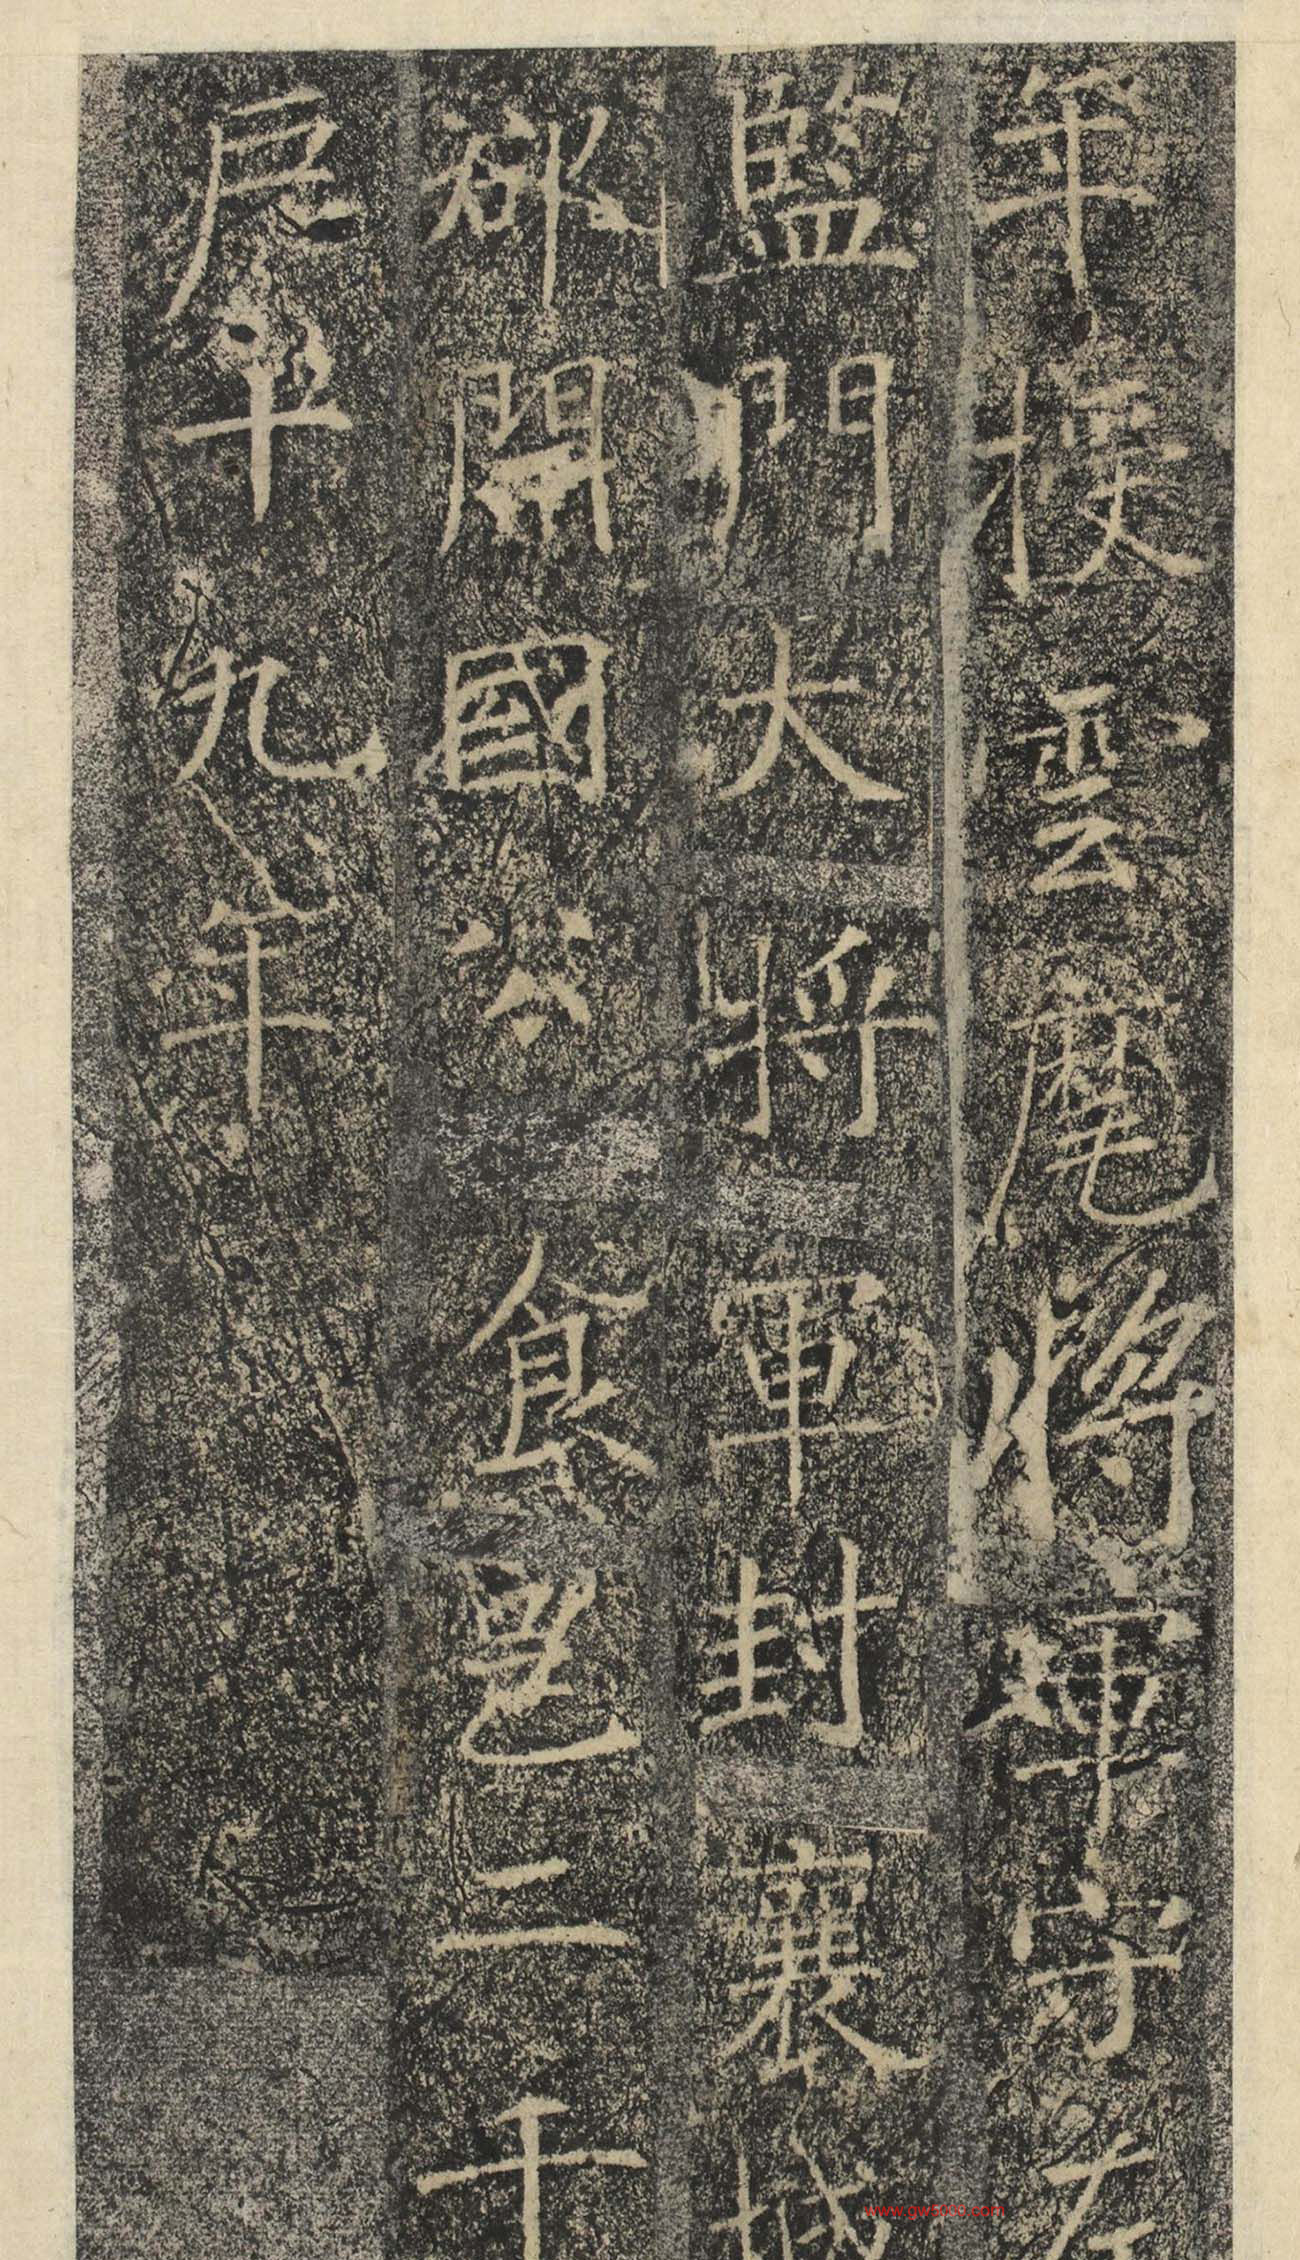 年授雲麾將軍守左
監門大將軍封襄城
郡開國公食邑二千
戶平九年
www.gw5000.com